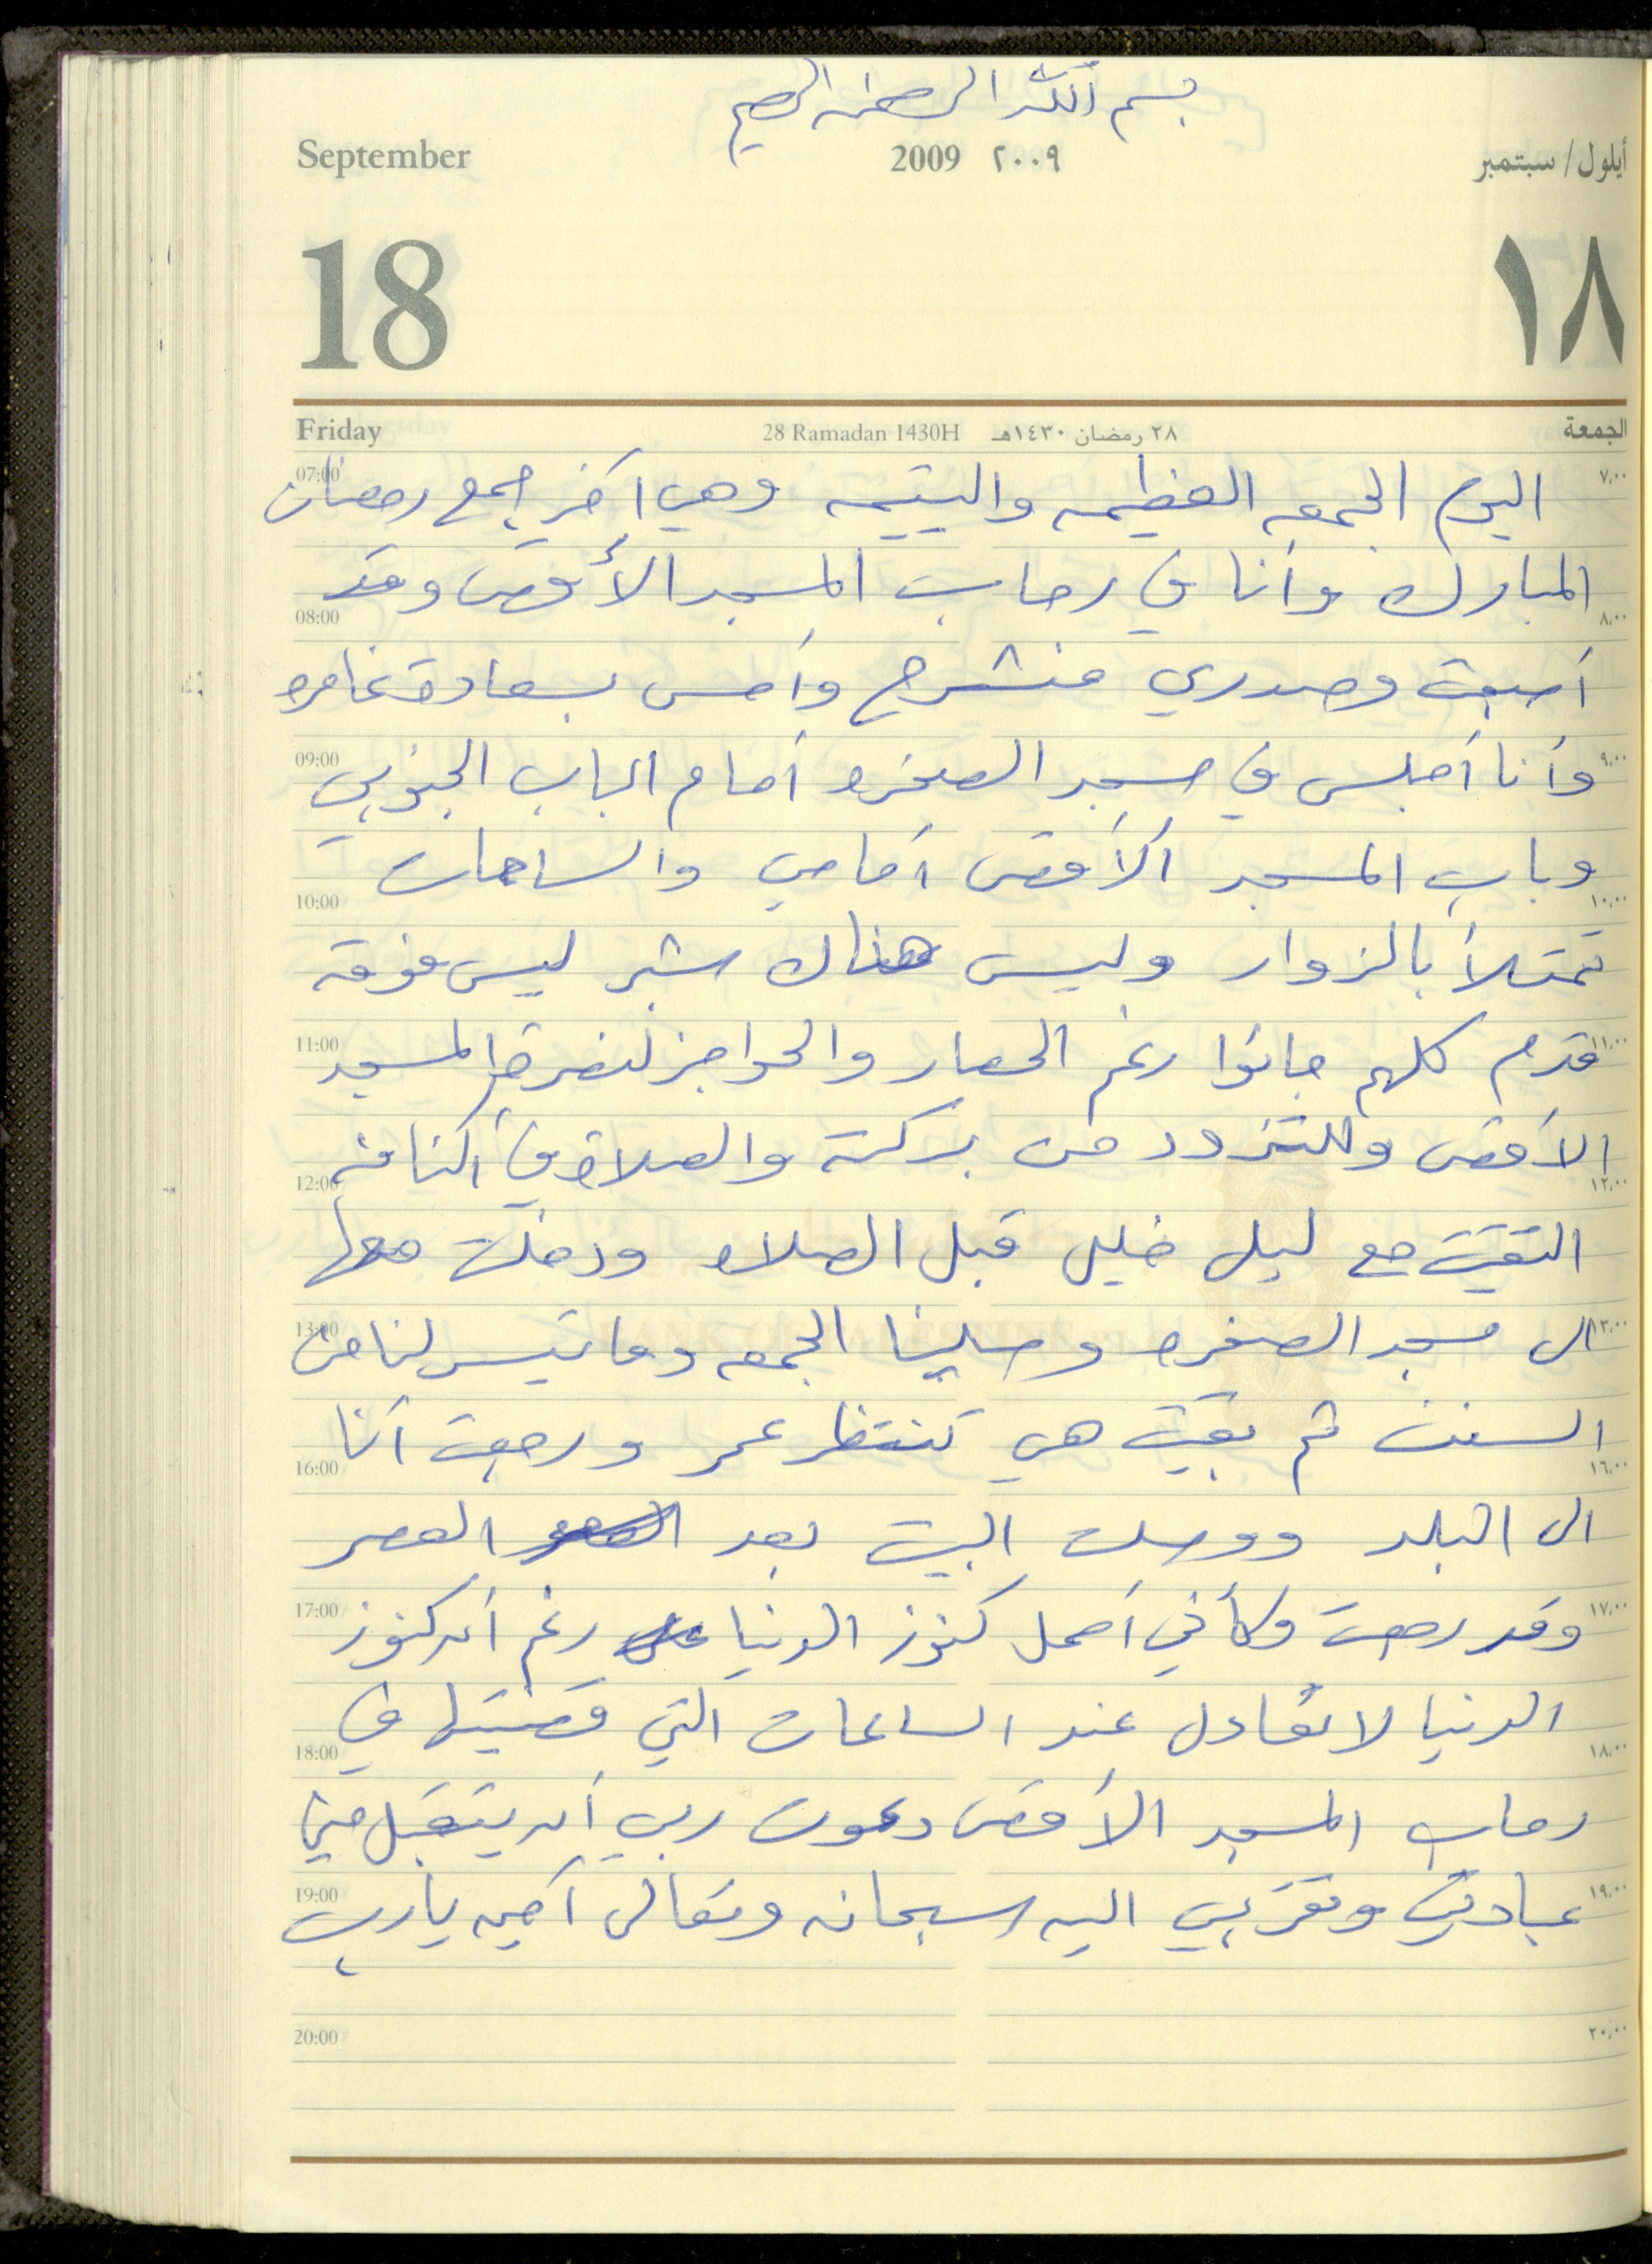 بسم الله الرحمن الرحيم
September 2009 ٢٠٠٩ أيلول/سبتمبر
18 ١٨
Friday 28 Ramadan 1430H ٢٨ رمضان ١٤٣٠هـ الجمعة
07:00 اليوم الجمعه العظيمه واليتيمه وهي آخر جمع رمضان ٧،٠٠
المبارك وأنا في رحاب المسجد الأقصى وقد
08:00 ٨،٠٠
أتيت وصدري منشرح وأحس بسعادة غامره
09:00 وأنا أجلس في مسجد الصخره أمام الباب الجنوبي ٩،٠٠
وباب المسجد الأقصى أمامي والساحات
10:00 ١٠،٠٠
تمتلأ بالزوار وليس هناك شبر ليس فوقه
11:00 قدم كلهم جائوا رغم الحصار والحواجز لنصرة المسجد ١١،٠٠
الأقصى وللتزود من بركته والصلاة في أكنافه
12:00 ١٢،٠٠
التقيت مع ليلى خليل قبل الصلاه ودخلت معها
13:00 الى مسجد الصخره وصلينا الجمعه وما تيسر لنا من ١٣،٠٠
السنن ثم بقيت هي تنتظر عمر ورجعت أنا
16:00 ١٦،٠٠
الى البلد ووصلت البيت بعد العصر
17:00 وقد رجعت وكأني أحمل كنوز الدنيا رغم أن كنوز ١٧،٠٠
الدنيا لا تعادل عند الساعات التي قضيتها في
18:00 ١٨،٠٠
رحاب المسجد الأقصى دعوت ربي أن يتقبل مني
19:00 عبادتي وتقربي اليه سبحانه وتعالى آمين يا رب ١٩،٠٠
20:00 ٢٠،٠٠